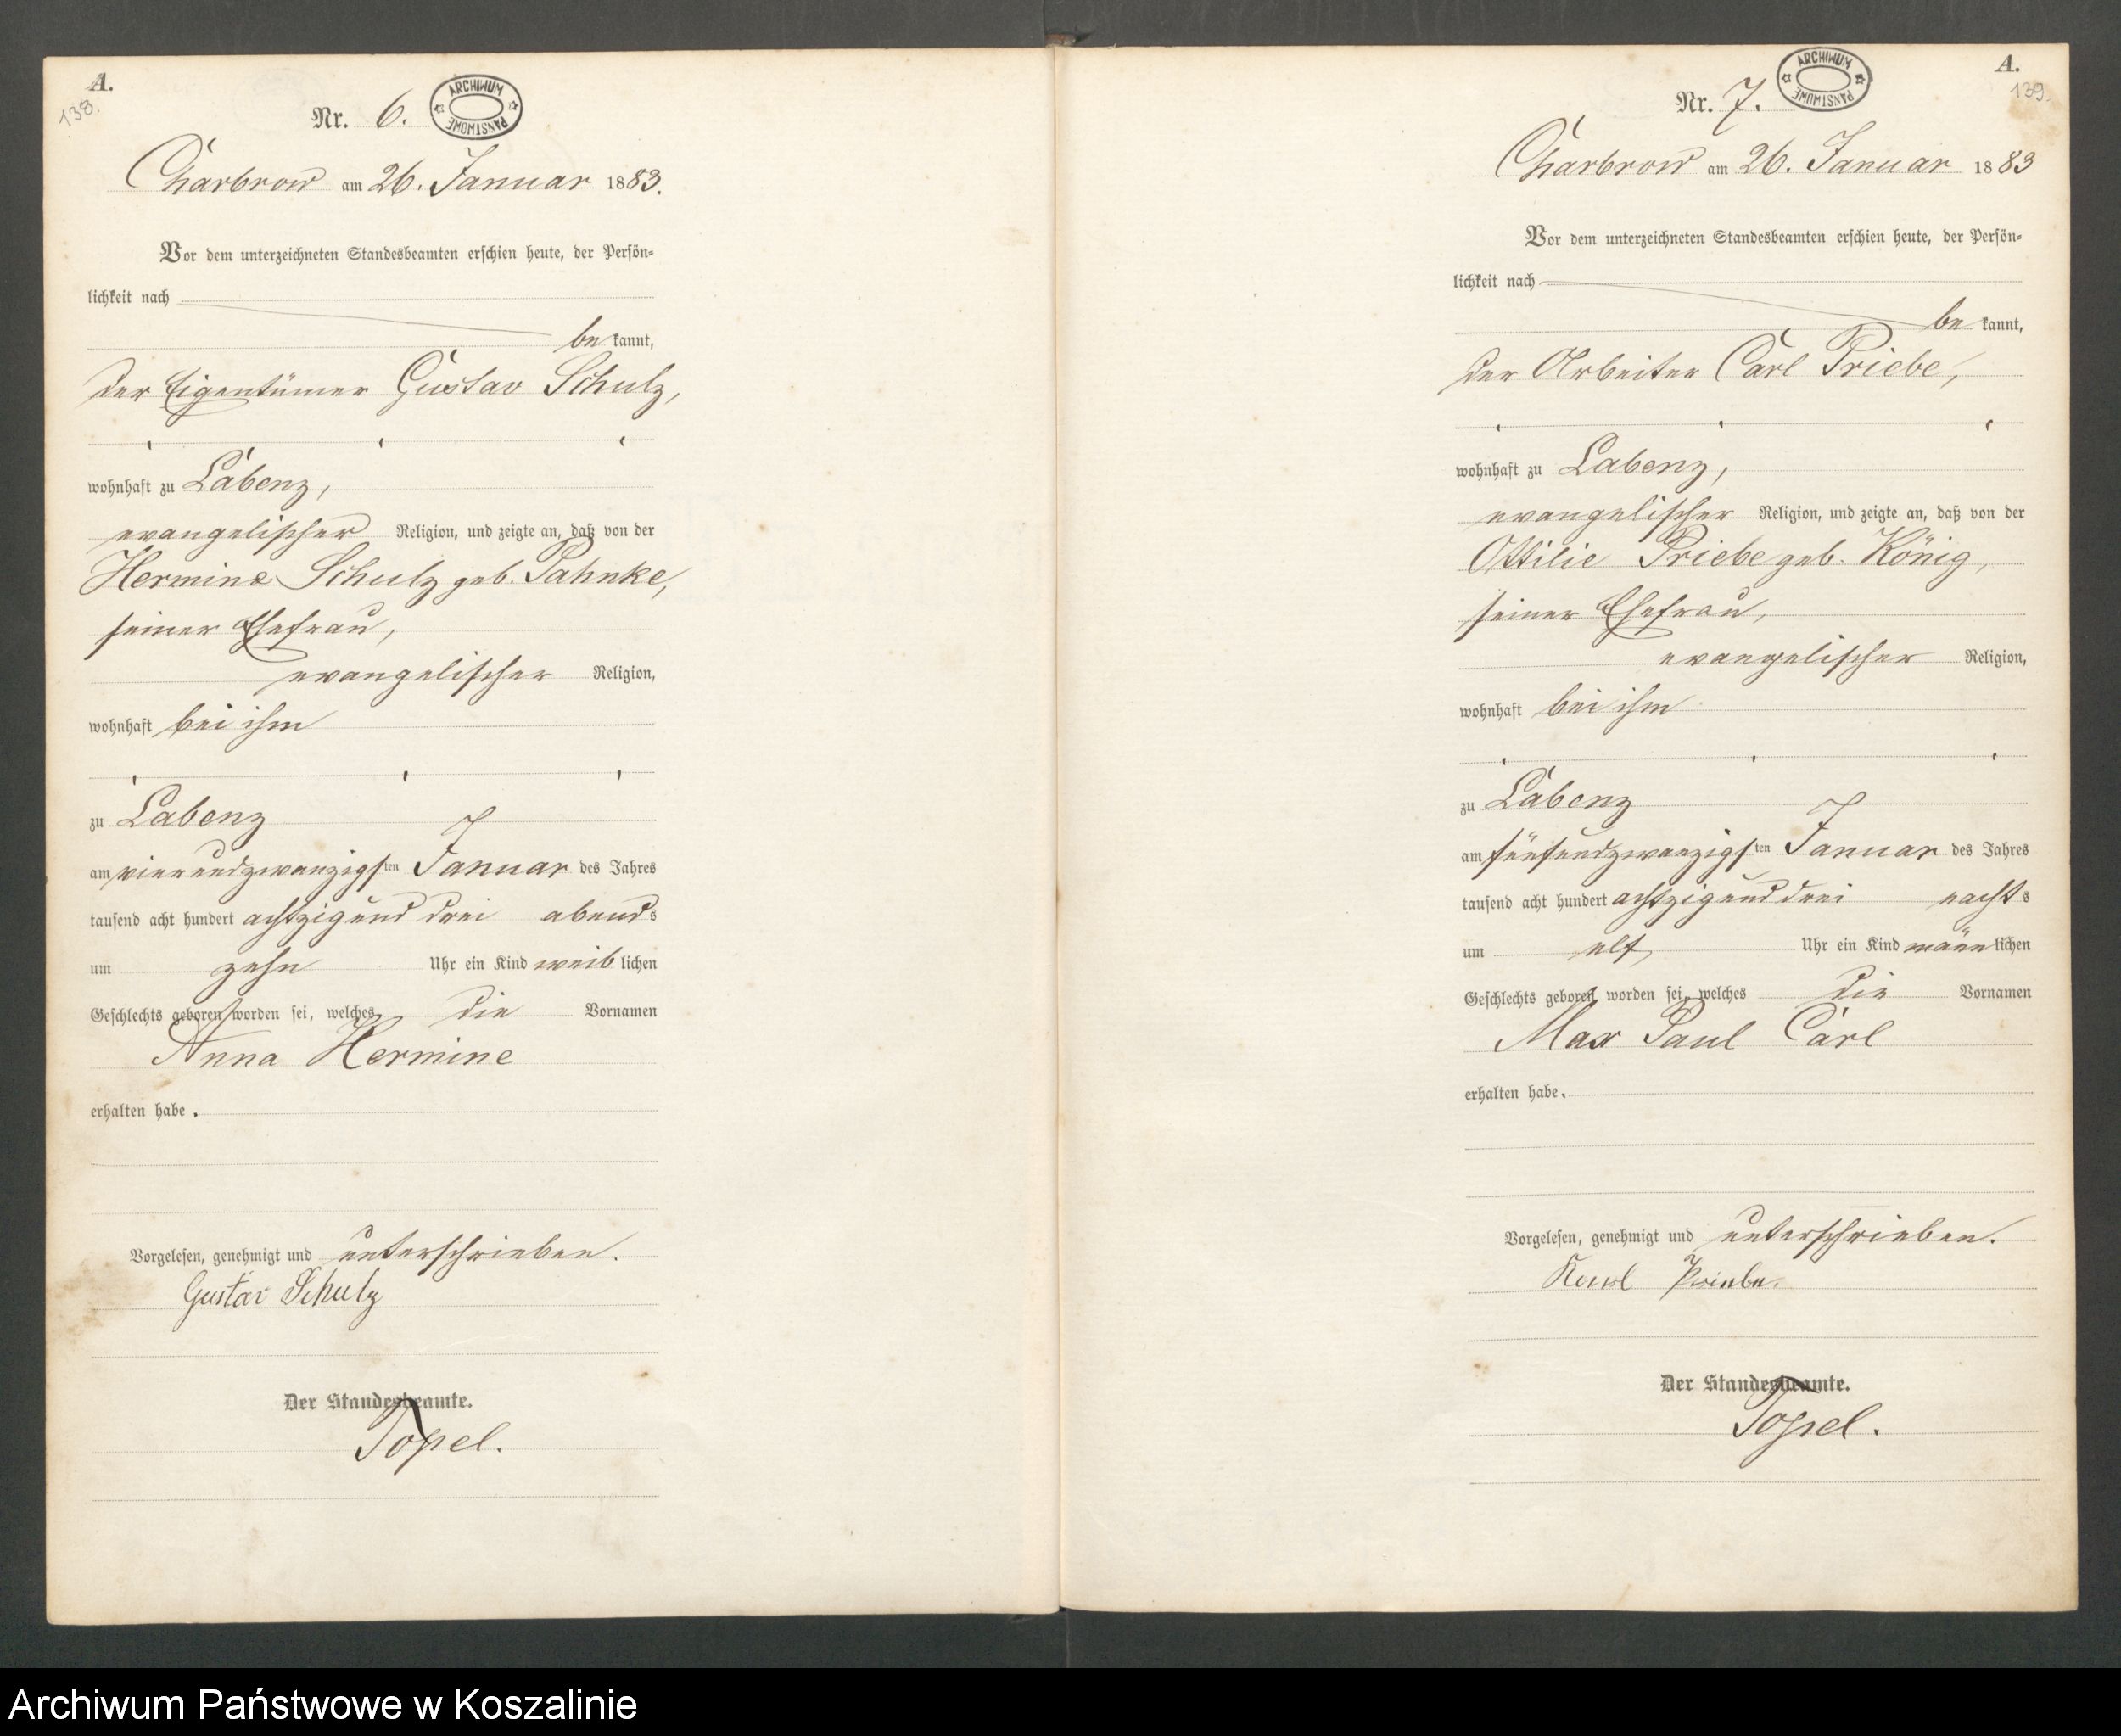 A.
138.
Nr. 6.
ARCHIWUM PAŃSTWOWE
Charbrow am 26. Januar 1883.
Vor dem unterzeichneten Standesbeamten erschien heute, der Persön-
lichkeit nach
bekannt,
der Eigentümer Gustav Schulz,
wohnhaft zu Labenz,
evangelischer Religion, und zeigte an, daß von der
Hermine Schulz geb. Pahnke,
seiner Ehefrau,
evangelischer Religion,
wohnhaft bei ihm
zu Labenz
am vierundzwanzigsten Januar des Jahres
tausend acht hundert achtzig und drei abends
um zehn Uhr ein Kind weiblichen
Geschlechts geboren worden sei, welches die Vornamen
Anna Hermine
erhalten habe.
Vorgelesen, genehmigt und unterschrieben.
Gustav Schulz
Der Standesbeamte.
Topel.
A.
139.
Nr. 7.
ARCHIWUM PAŃSTWOWE
Charbrow am 26. Januar 1883
Vor dem unterzeichneten Standesbeamten erschien heute, der Persön-
lichkeit nach
bekannt,
der Arbeiter Carl Priebe,
wohnhaft zu Labenz,
evangelischer Religion, und zeigte an, daß von der
Ottilie Priebe geb. König,
seiner Ehefrau,
evangelischer Religion,
wohnhaft bei ihm
zu Labenz
am fünfundzwanzigsten Januar des Jahres
tausend acht hundert achtzig und drei nachts
um elf Uhr ein Kind männlichen
Geschlechts geboren worden sei, welches die Vornamen
Max Paul Carl
erhalten habe.
Vorgelesen, genehmigt und unterschrieben.
Karl Priebe.
Der Standesbeamte.
Topel.
Archiwum Państwowe w Koszalinie